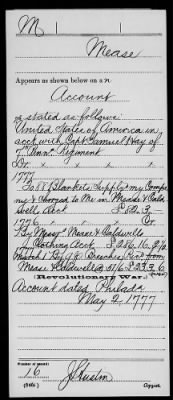 M
Mease
Appears as shown below on a
Account
as stated as follows:
United States of America in
acct with Capt Samuel Hay of
7" Penn. Regiment
Dr. x x x x
1777
To 58 Blankets Supply'd my Compa
ny & charged to Me in Mease & Cald
well Acct £
1776 Cr.
By Mess Mease & Caldwells
Clothing Acct £
March 1 By Breeches from
Mease & Caldwell
Revolutionary War.
Account dated Philada
May 2, 1777
Number of record:
16
Copyist.